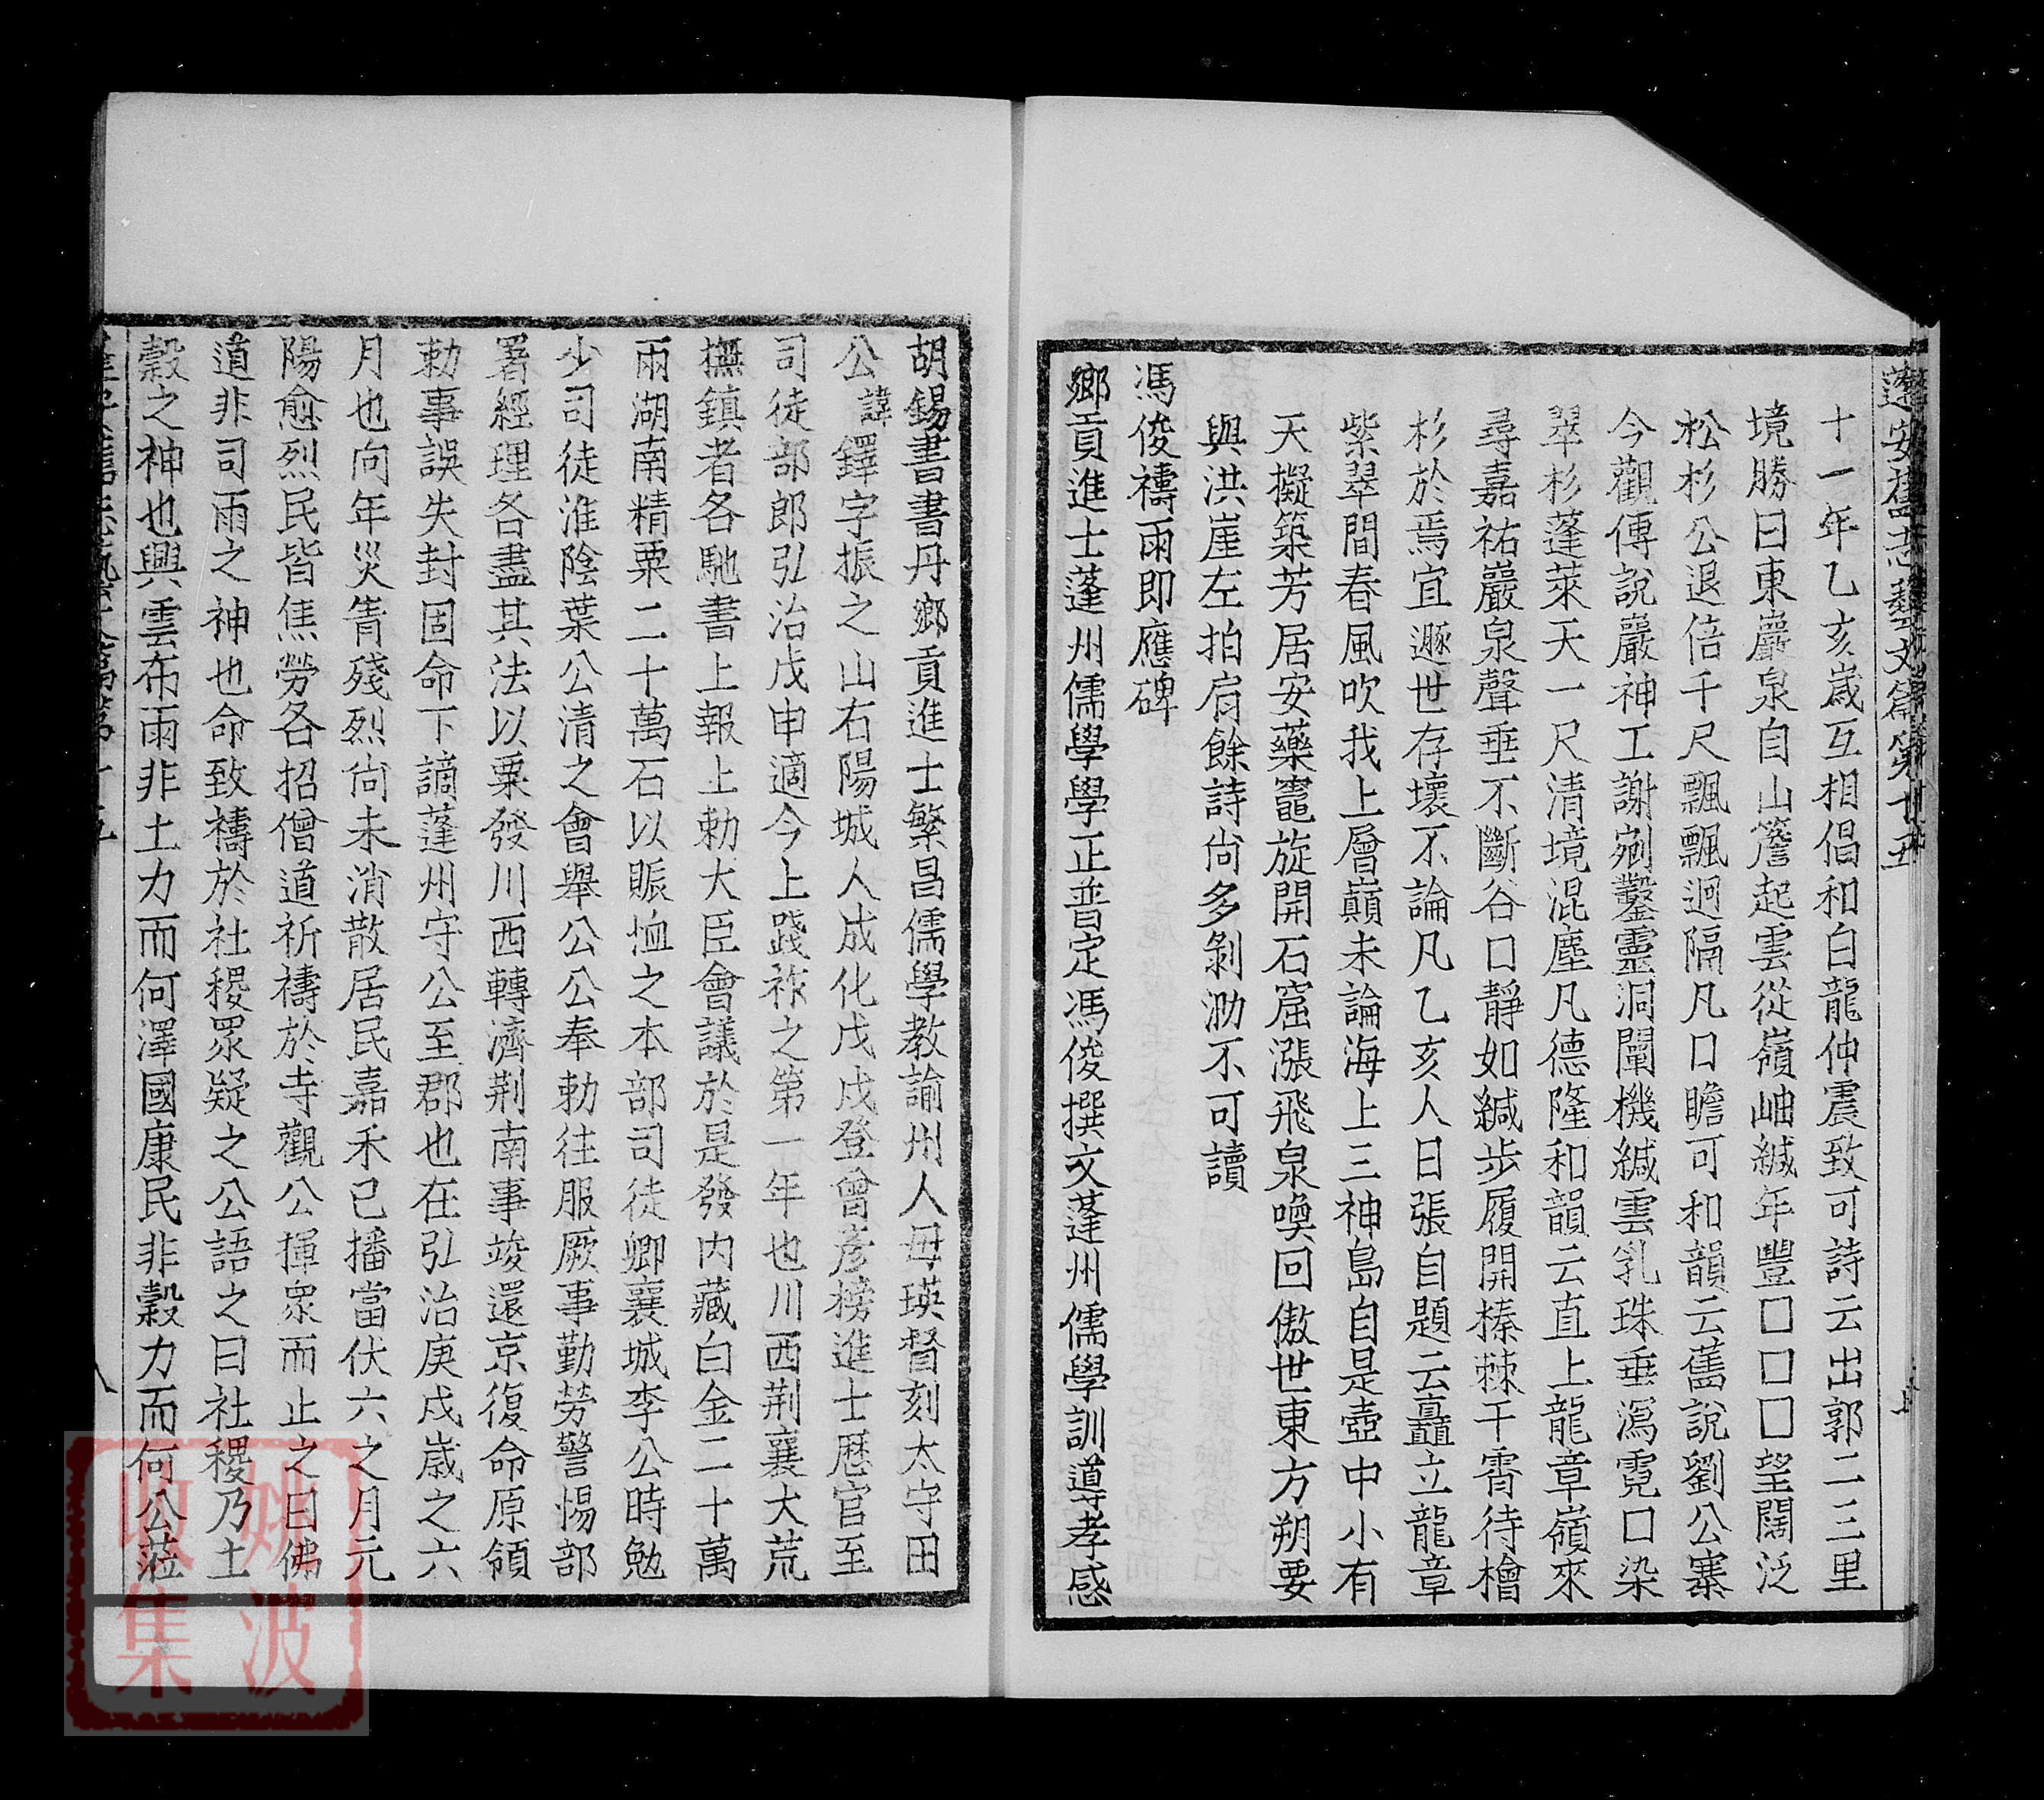 蓬安舊志藝文篇第十五
十一年乙亥歲互相倡和白龍仲震致可詩云出郭二三里
境勝曰東巖泉自山簷起雲從嶺岫緘年豐囗囗囗望闊泛
松杉公退倍千尺飄飄迥隔凡口瞻可和韻云舊說劉公寨
今觀傳說巖神工謝剜鑿靈洞闡機緘雲乳珠垂瀉霓口染
翠杉蓬萊天一尺清境混塵凡德隆和韻云直上龍章嶺來
尋嘉祐巖泉聲垂不斷谷口靜如緘步履開榛棘干霄待檜
杉於焉宜遯世存壞不論凡乙亥人日張自題云矗立龍章
紫翠間春風吹我上層巔未論海上三神島自是壺中小有
天擬築芳居安藥竈旋開石窟漲飛泉喚回傲世東方朔要
與洪崖左拍肩餘詩尚多剝泐不可讀
馮俊禱雨即應碑
鄉貢進士蓬州儒學學正普定馮俊撰文蓬州儒學訓導孝感
胡錫書書丹鄉貢進士繁昌儒學教諭州人毋瑛督刻太守田
公諱鐸字振之山右陽城人成化戊戌登曾彥榜進士歷官至
司徒部郎弘治戊申適今上踐祚之第一年也川西荆襄大荒
撫鎮者各馳書上報上勅大臣會議於是發内藏白金二十萬
兩湖南精粟二十萬石以賑恤之本部司徒卿襄城李公時勉
少司徒淮陰葉公清之會舉公公奉勅往服厥事勤勞警惕部
署經理各盡其法以粟發川西轉濟荆南事竣還京復命原領
勅事誤失封固命下謫蓬州守公至郡也在弘治庚戌歲之六
月也向年災眚殘烈尚未消散居民嘉禾已播當伏六之月亢
陽愈烈民皆焦勞各招僧道祈禱於寺觀公揮衆而止之曰佛
道非司雨之神也命致禱於社稷眾疑之公語之曰社稷乃土
穀之神也興雲布雨非土力而何澤國康民非穀力而何公蒞
八
姚波
收集